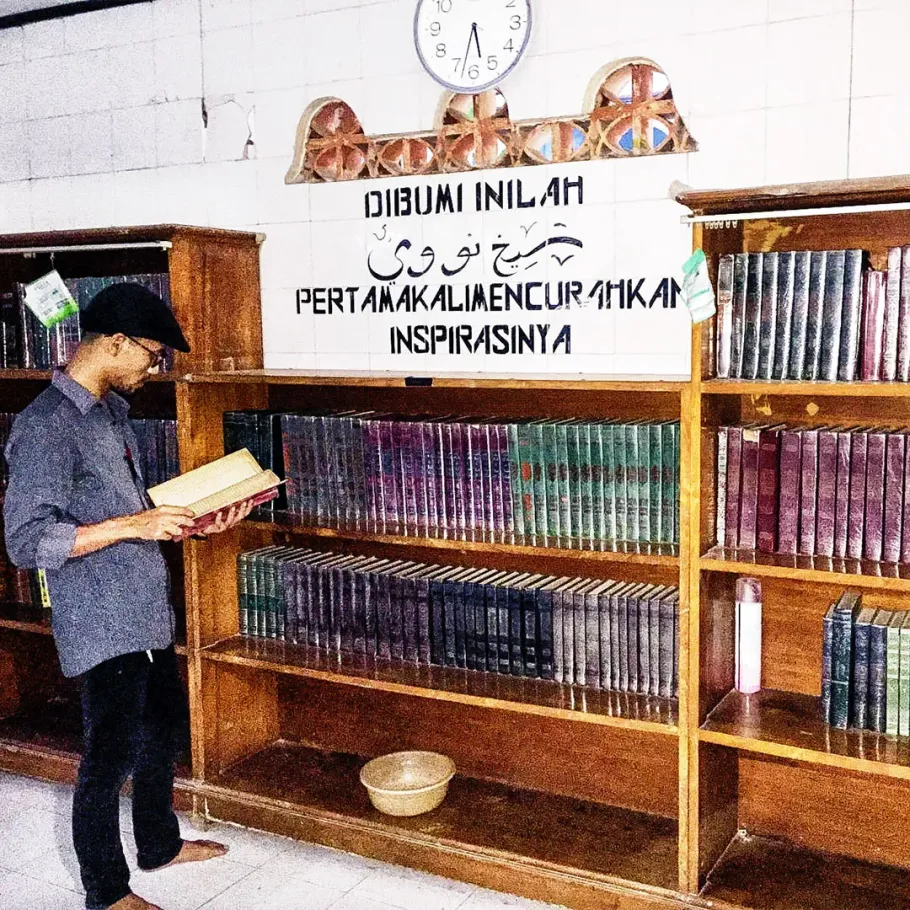 10 2
9 3
8 4
7 6 5
DIBUMI INILAH
شيخ نووي
PERTAMAKALIMENCURAHKAN
INSPIRASINYA